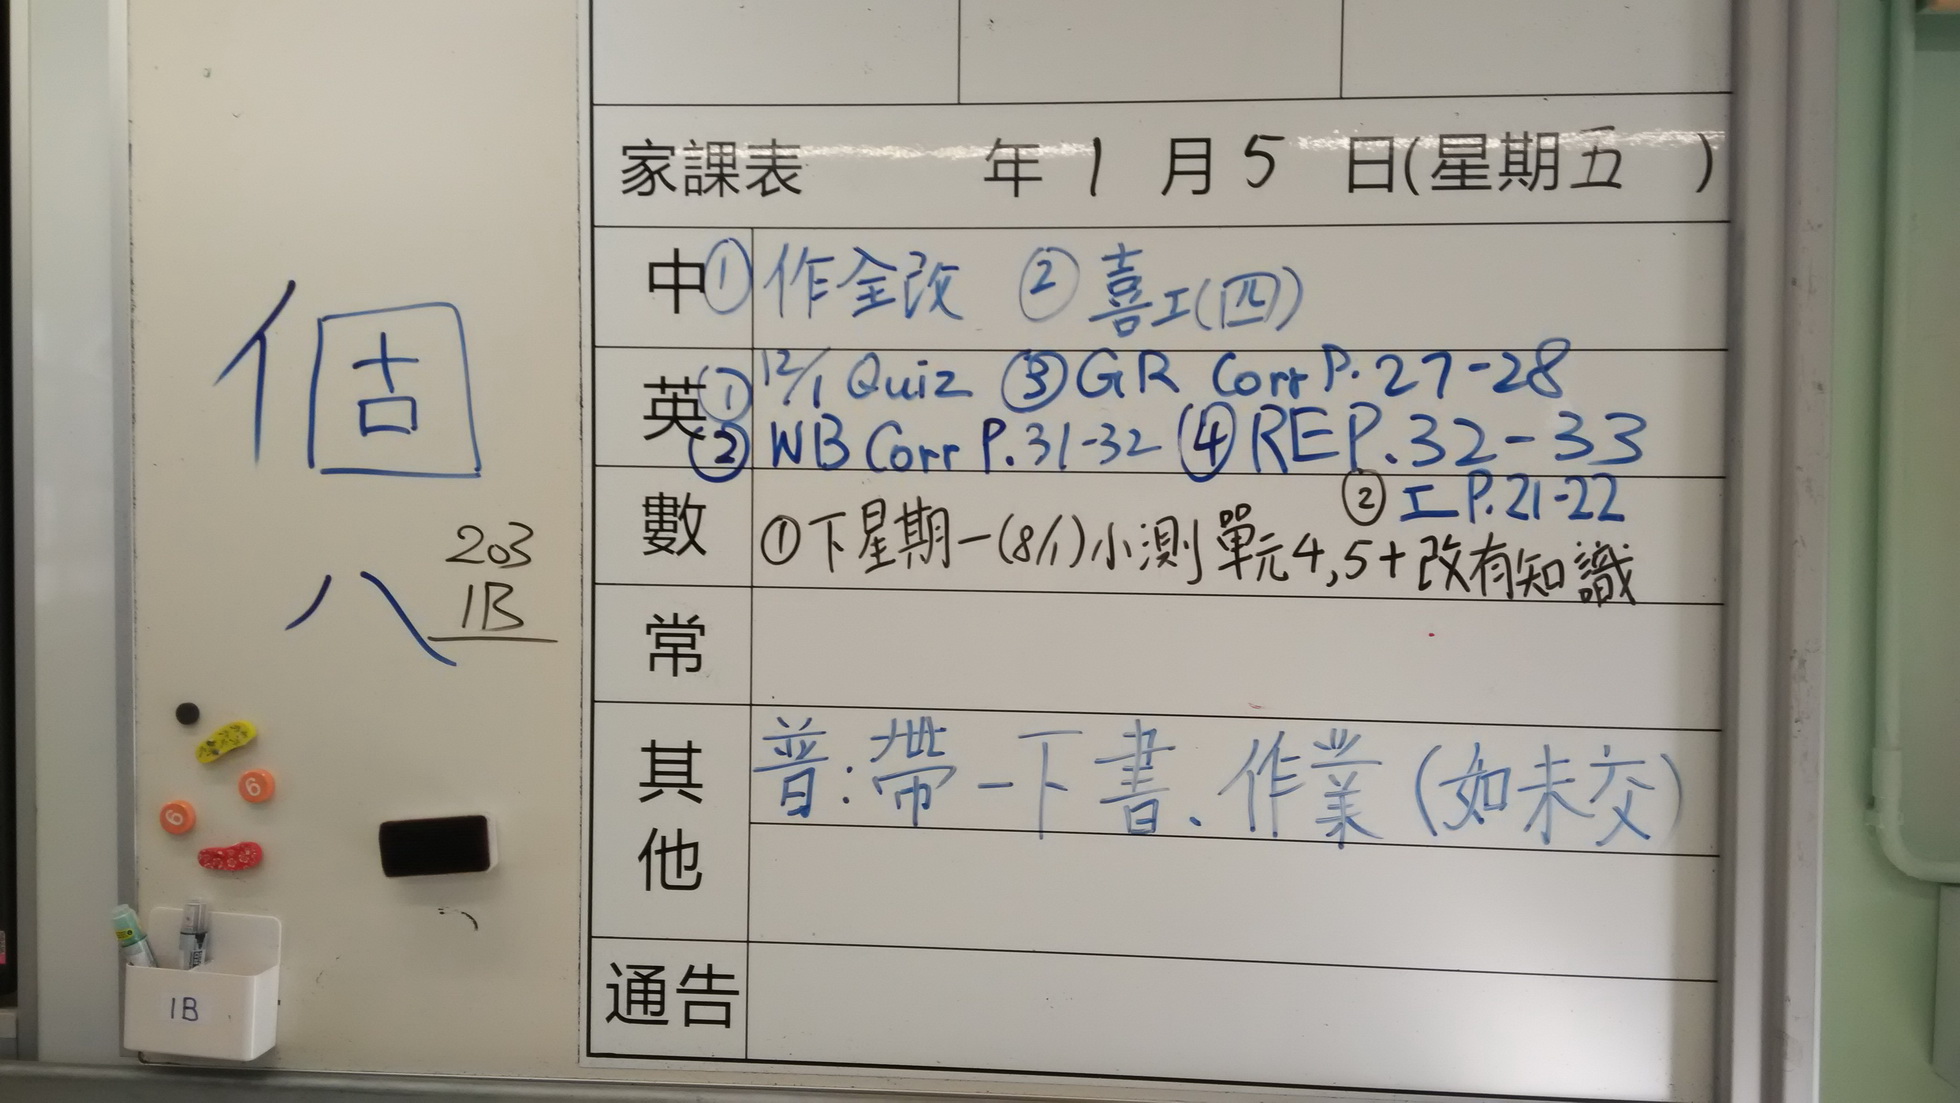 個
八
203
1B
6
6
1B
家課表 年 1 月 5 日(星期五 )
中 ① 作全改 ② 喜工(四)
英 ① 12/1 Quiz ③ GR Corr P.27-28
② WB Corr P.31-32 ④ REP.32-33
數 ② 工 P.21-22
① 下星期一(8/1)小測單元4,5+改有知識
常
其他
普:帶一下書、作業(如未交)
通告